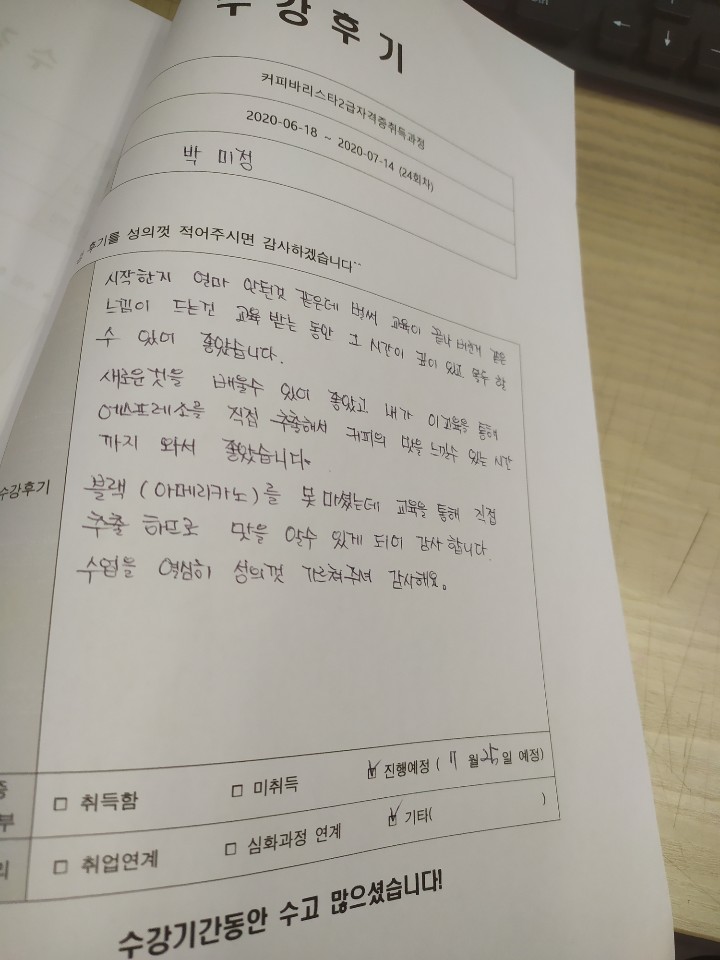 수강후기
커피바리스타2급자격증취득과정
2020-06-18 ~ 2020-07-14 (24회차)
박 미정
후기를 성의껏 적어주시면 감사하겠습니다^^
수강후기
시작한지 얼마 안된것 같은데 벌써 교육이 끝나 버린거 같은
느낌이 드는건 교육 받는 동안 그 시간이 깊이 있고 몰두 할
수 있어 좋았습니다.
새로운것을 배울수 있어 좋았고 내가 이교육을 통해
에스프레소를 직접 추출해서 커피의 맛을 느낄수 있는 시간
까지 와서 좋았습니다.
블랙 (아메리카노)를 못 마셨는데 교육을 통해 직접
추출 하므로 맛을 알수 있게 되어 감사 합니다.
수업을 열심히 성의껏 가르쳐주셔 감사해요。
□ 취득함 □ 미취득 ☑ 진행예정 ( 7 월 25일 예정)
□ 취업연계 □ 심화과정 연계 ☑ 기타( )
수강기간동안 수고 많으셨습니다!